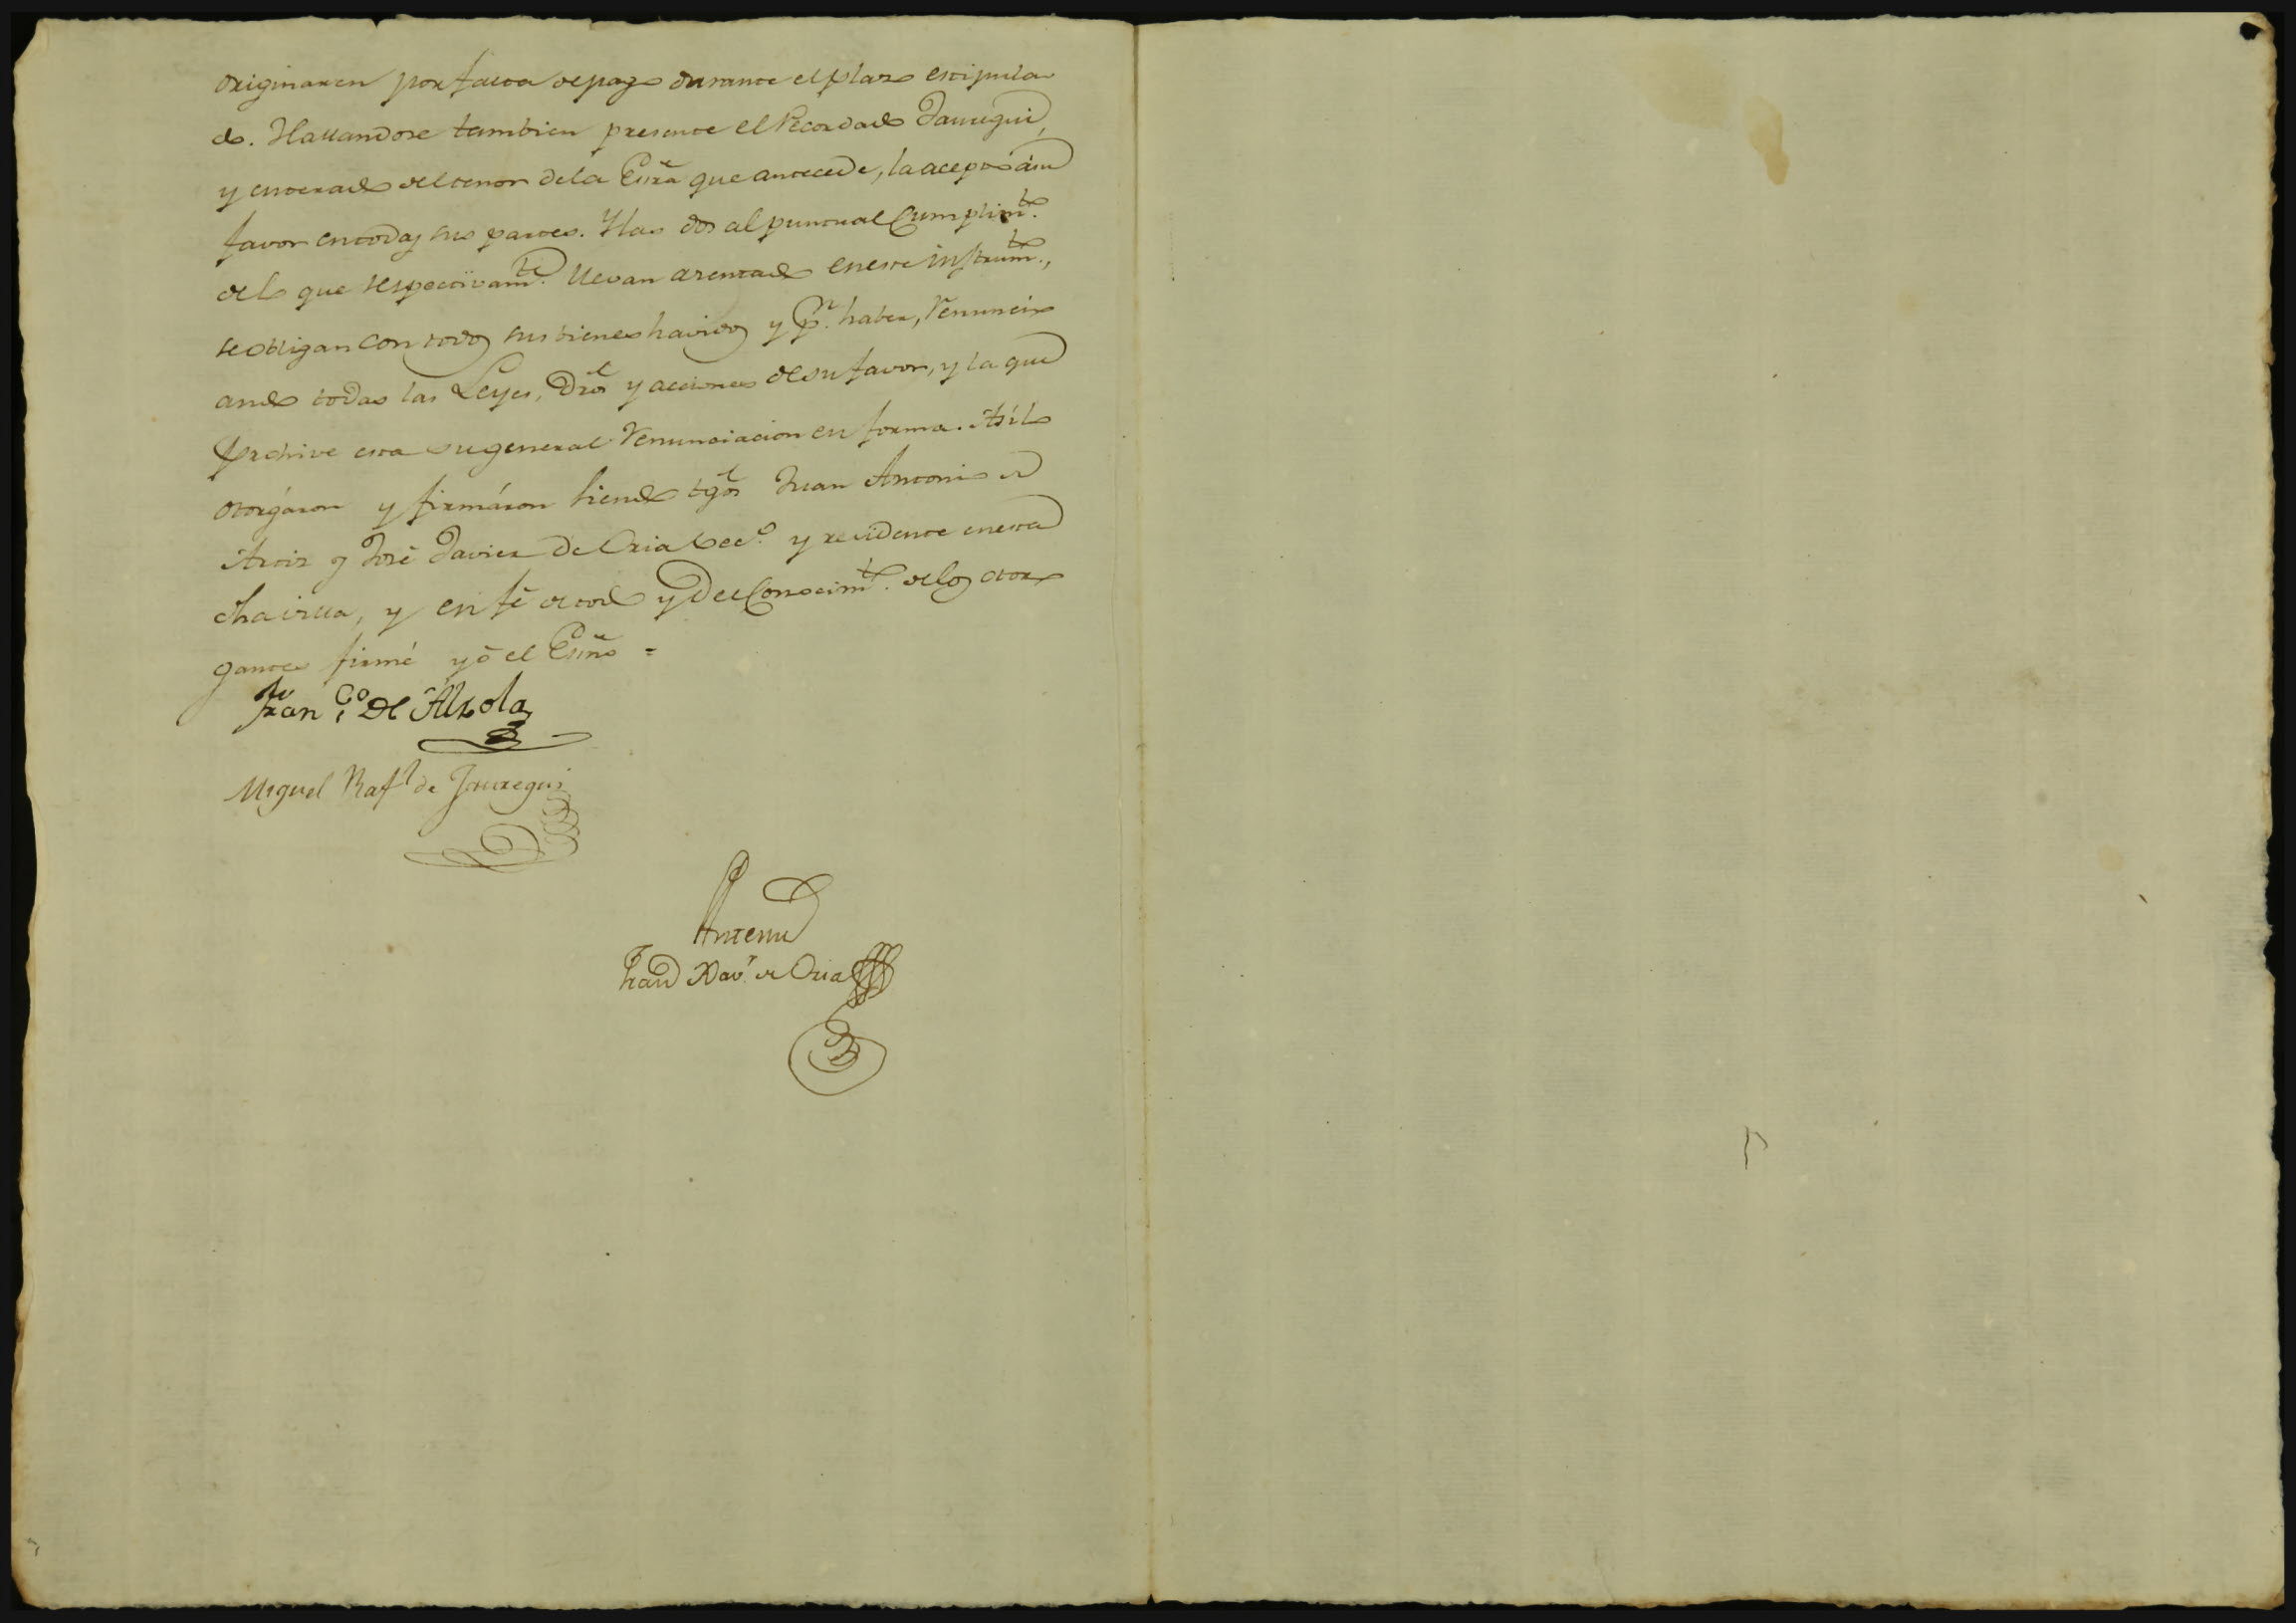 originaren por falta de pago durante el plazo estipula
do. Hallandose tambien presente el Recordado Jauregui,
y enterado del tenor de la Essrã que antecede, la acepto á su
favor en todas sus partes. Y los dos al puntual Cumplimto.
de lo que respectivamte. llevan asentado en este instrumto.,
se obligan con todos sus bienes havidos y pr. haber, Renunci
ando todas las Leyes, Dros y acciones de su favor, y la que
prohive esta su general Renunciacion en forma. Asílo
otorgáron y firmáron siendo tgos Juan Antonio de
y José Javier de Oria vec.s y residente en esta
dha villa, y en fé de todo y del Conocimto. de los otor
gantes firmé yó el Essno =
Franco. de Alzola
Miguel Rafl de Jauregui
Antemi
Xavr. de Oria